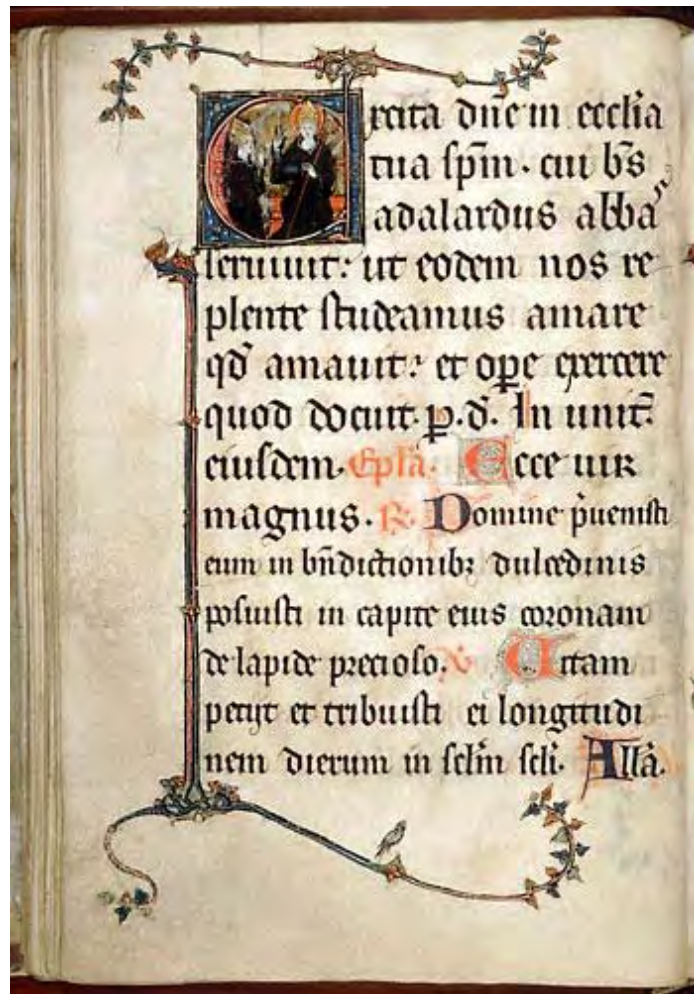 Excita dñe in ecclia
tua sp̃m. cui b̃s
adalardus abba
seruiuit: ut eodem nos re
plente studeamus amare
qd̃ amauit: et oꝑe exercere
quod docuit. p. d̃. In unit̃.
eiusdem. Epl̃a. Ecce uir
magnus. R̃. Domine p̃uenisti
eum in bñdictionibꝫ dulcedinis
posuisti in capite eius coronam
de lapide precioso. Ṽ. Uitam
petijt et tribuisti ei longitudi
nem dierum in sclm̃ scli. All̃a.